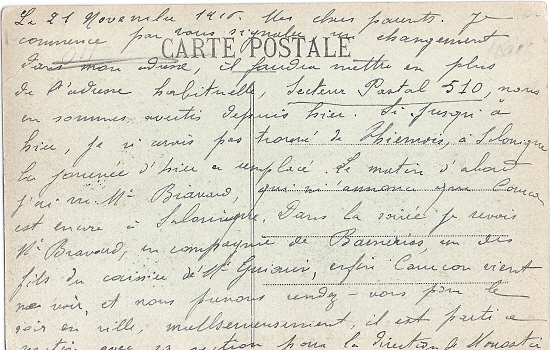 Le 21 Novembre 1916. Mes chers parents. Je
commence par vous signaler un changement
CARTE POSTALE
dans mon adresse, il faudra mettre en plus
de l'adresse habituelle, Secteur Postal 510, nous
en sommes avertis depuis hier. Si jusqu'à
hier, je n'avais pas trouvé de Thiernois, à Salonique
la journée d'hier a remplacé. Le matin d'abord
j'ai vu Mr Bravard, qui m'annonce que Coucon
est encore à Salonique, Dans la soirée je revois
Mr Bravard, en compagnie de un des
fils du caissier de Mr enfin Coucon vient
me voir, et nous prenons rendez-vous pour le
soir en ville, malheureusement, il est parti
avec sa section pour la direction de